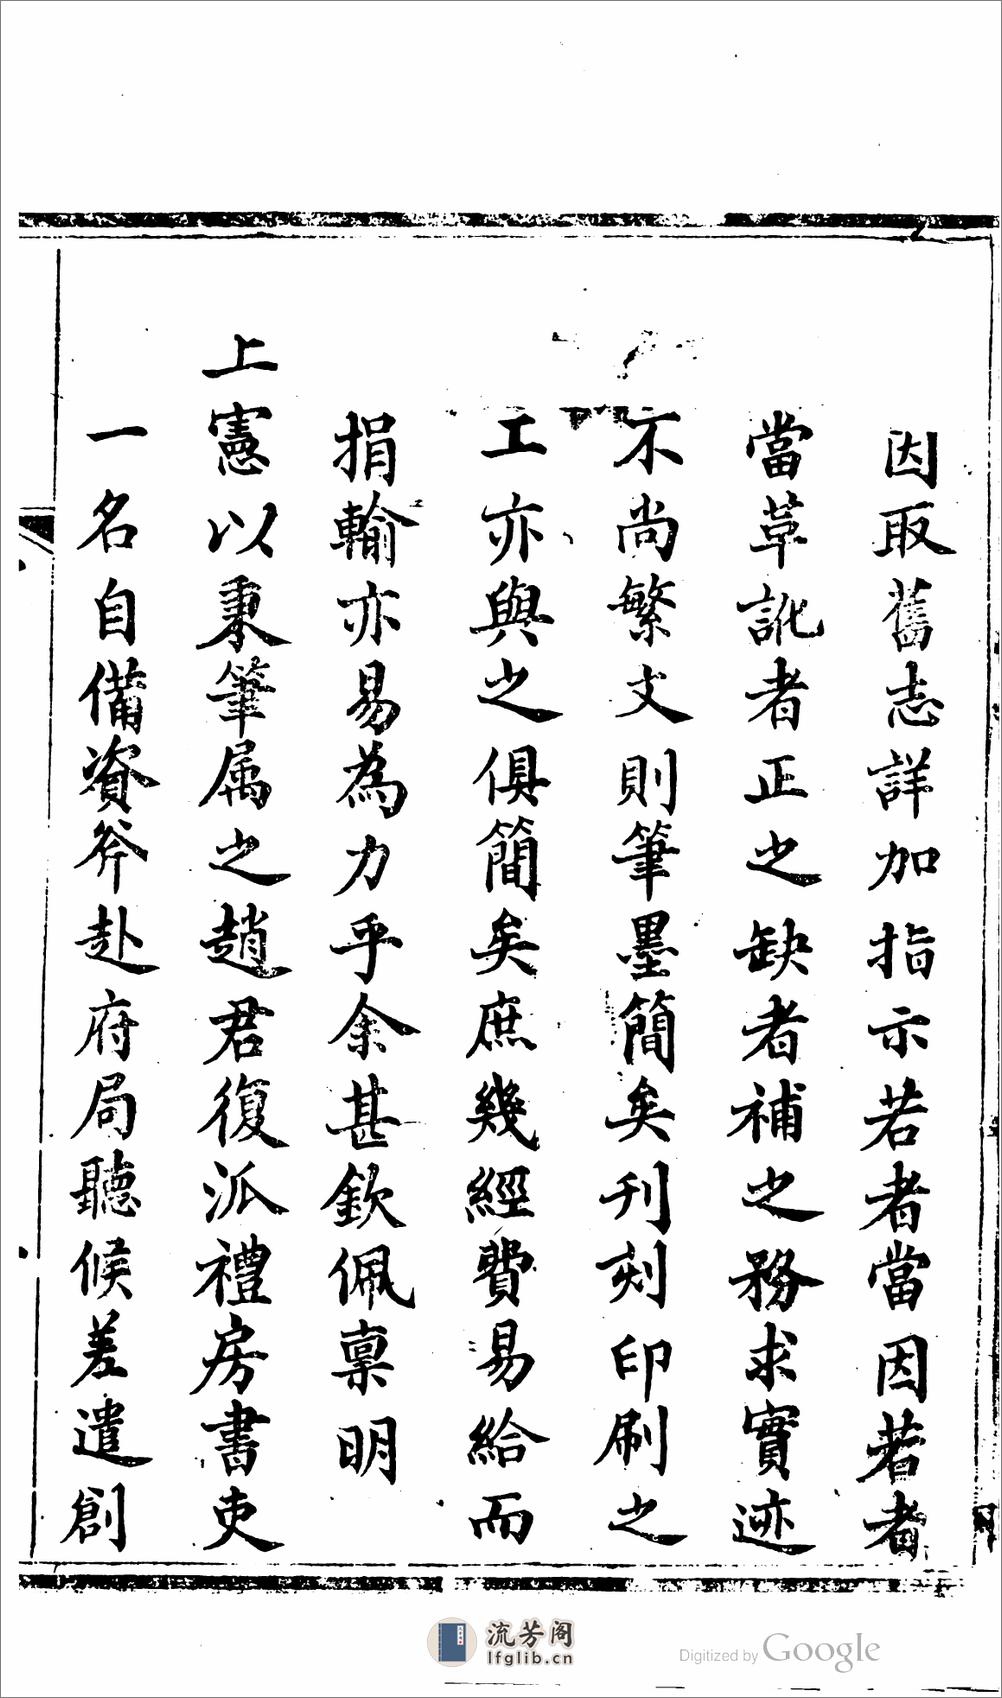 因取舊志詳加指示若者當因若者
當革訛者正之缺者補之務求實迹
不尚繁文則筆墨簡矣刊刻印刷之
工亦與之俱簡矣庶幾經費易給而
捐輸亦易為力乎余甚欽佩稟明
上憲以秉筆属之趙君復派禮房書吏
一名自備資斧赴府局聽候差遣創
流芳阁
lfglib.cn
Digitized by Google